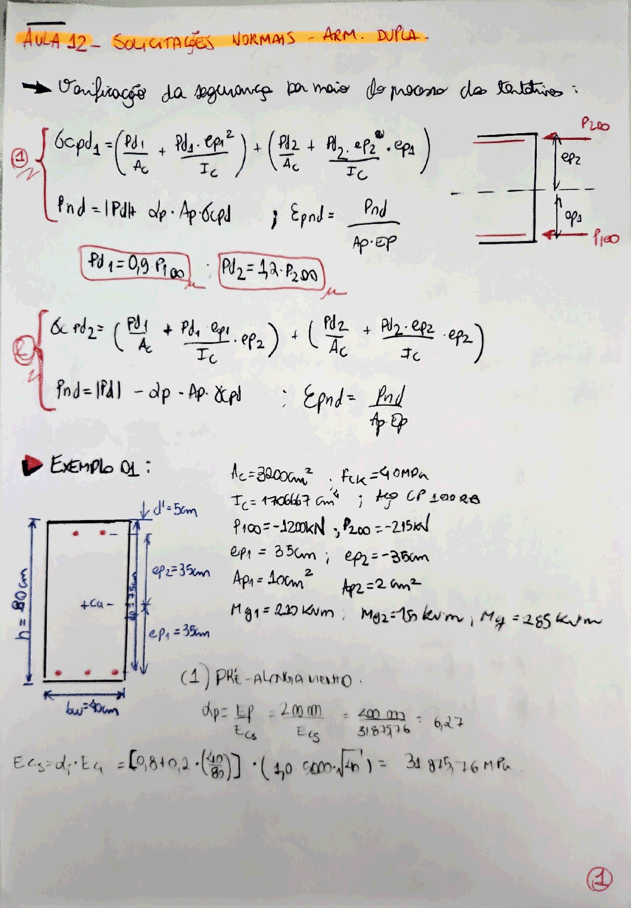 AULA 12 - SOLICITAÇÕES NORMAIS - ARM. DUPLA.
→ Verificação da segurança por meio do processo das tentativas:
① σcpd₁ = (Pd₁/Ac + Pd₁·ep₁²/Ic) + (Pd₂/Ac + Pd₂·ep₂/Ic ·ep₁)
Pnd = |Pd| + αp·Ap·σcpd ; εpnd = Pnd/Ap·EP
Pd₁ = 0,9·P₁∞ ; Pd₂ = 1,2·P₂∞
P2∞
ep2
ep1
P1∞
② σcpd₂ = (Pd₁/Ac + Pd₁·ep₁/Ic ·ep₂) + (Pd₂/Ac + Pd₂·ep₂/Ic ·ep₂)
Pnd = |Pd| - αp - Ap·σcpd ; εpnd = Pnd/Ap·EP
EXEMPLO 01:
Ac = 3200cm² ; fck = 40MPa
Ic = 1706667 cm⁴ ; Aço CP 190RB
P1∞ = -1200kN ; P2∞ = -215kN
ep1 = 35cm ; ep2 = -35cm
Ap1 = 10cm² Ap2 = 2cm²
Mg1 = 220 kNm ; Mg2 = 150 kNm ; Mq = 285 kNm
d' = 5cm
h = 80cm
ep2 = 35cm
+CG-
ep1 = 35cm
bw = 40cm
(1) PRÉ-ALONGAMENTO.
αp = Ep/Ecs = 200 000/Ecs = 200 000/31875,76 = 6,27
Ecs = αi·Eci = [0,8+0,2·(40/80)]·(1,0·5600·√40) = 31875,76 MPa
①